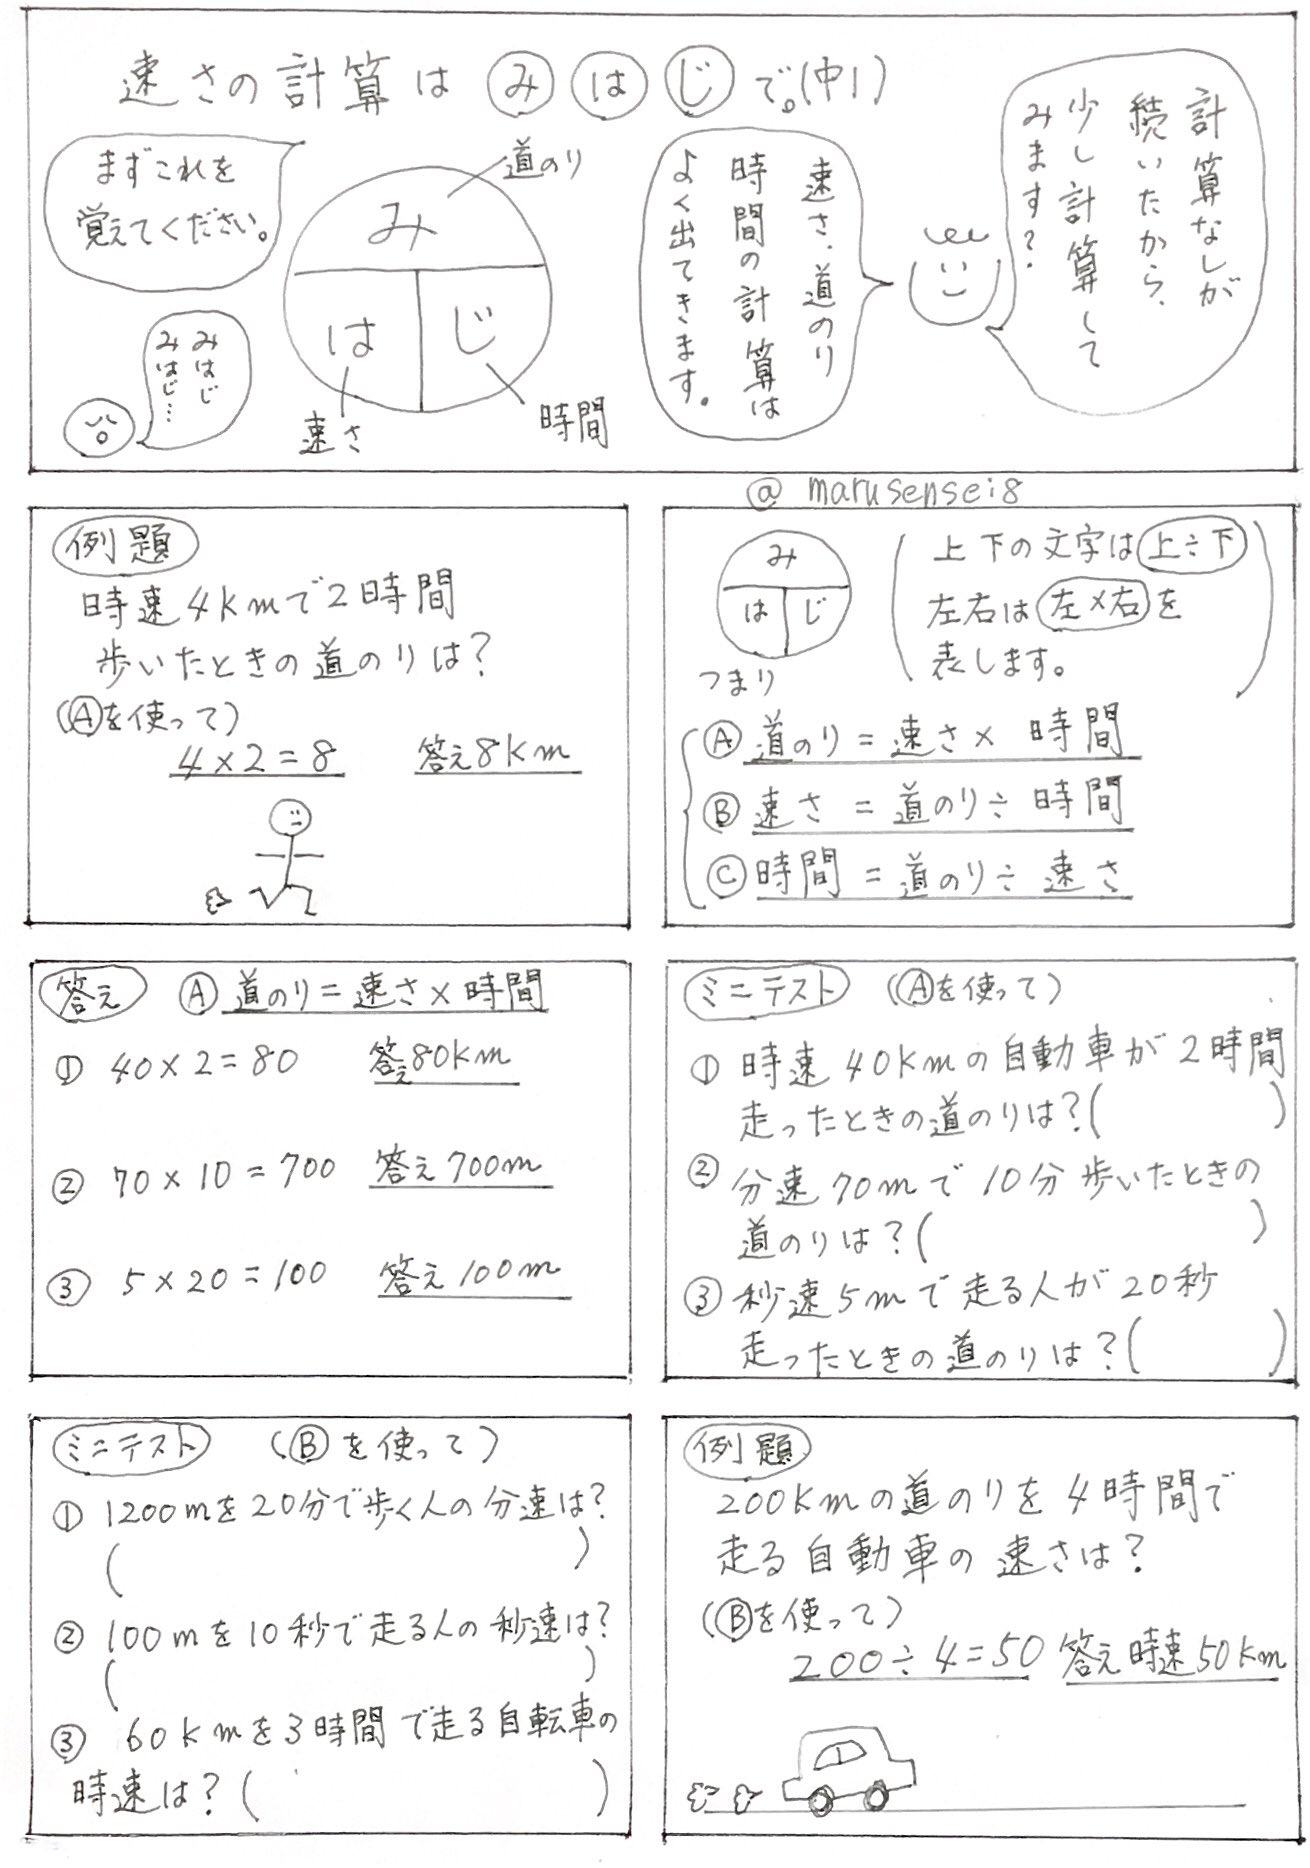 速さの計算は み は じ で。(中1)
計算なしが
続いたから、
少し計算して
みます?
速さ、道のり
時間の計算は
よく出てきます。
まずこれを
覚えてください。
道のり
み
は
じ
速さ
時間
みはじ
みはじ…
@marusensei8
み
は
じ
上下の文字は上÷下
左右は左×右を
表します。
つまり
Ⓐ 道のり=速さ×時間
Ⓑ 速さ=道のり÷時間
Ⓒ 時間=道のり÷速さ
例題
時速4kmで2時間
歩いたときの道のりは?
(Ⓐを使って)
4×2=8 答え8km
ミニテスト (Ⓐを使って)
① 時速40kmの自動車が2時間
走ったときの道のりは?( )
② 分速70mで10分歩いたときの
道のりは?( )
③ 秒速5mで走る人が20秒
走ったときの道のりは?( )
答え Ⓐ 道のり=速さ×時間
① 40×2=80 答え80km
② 70×10=700 答え700m
③ 5×20=100 答え100m
例題
200kmの道のりを4時間で
走る自動車の速さは?
(Ⓑを使って)
200÷4=50 答え時速50km
ミニテスト (Ⓑを使って)
① 1200mを20分で歩く人の分速は?
( )
② 100mを10秒で走る人の秒速は?
( )
③ 60kmを3時間で走る自転車の
時速は?( )